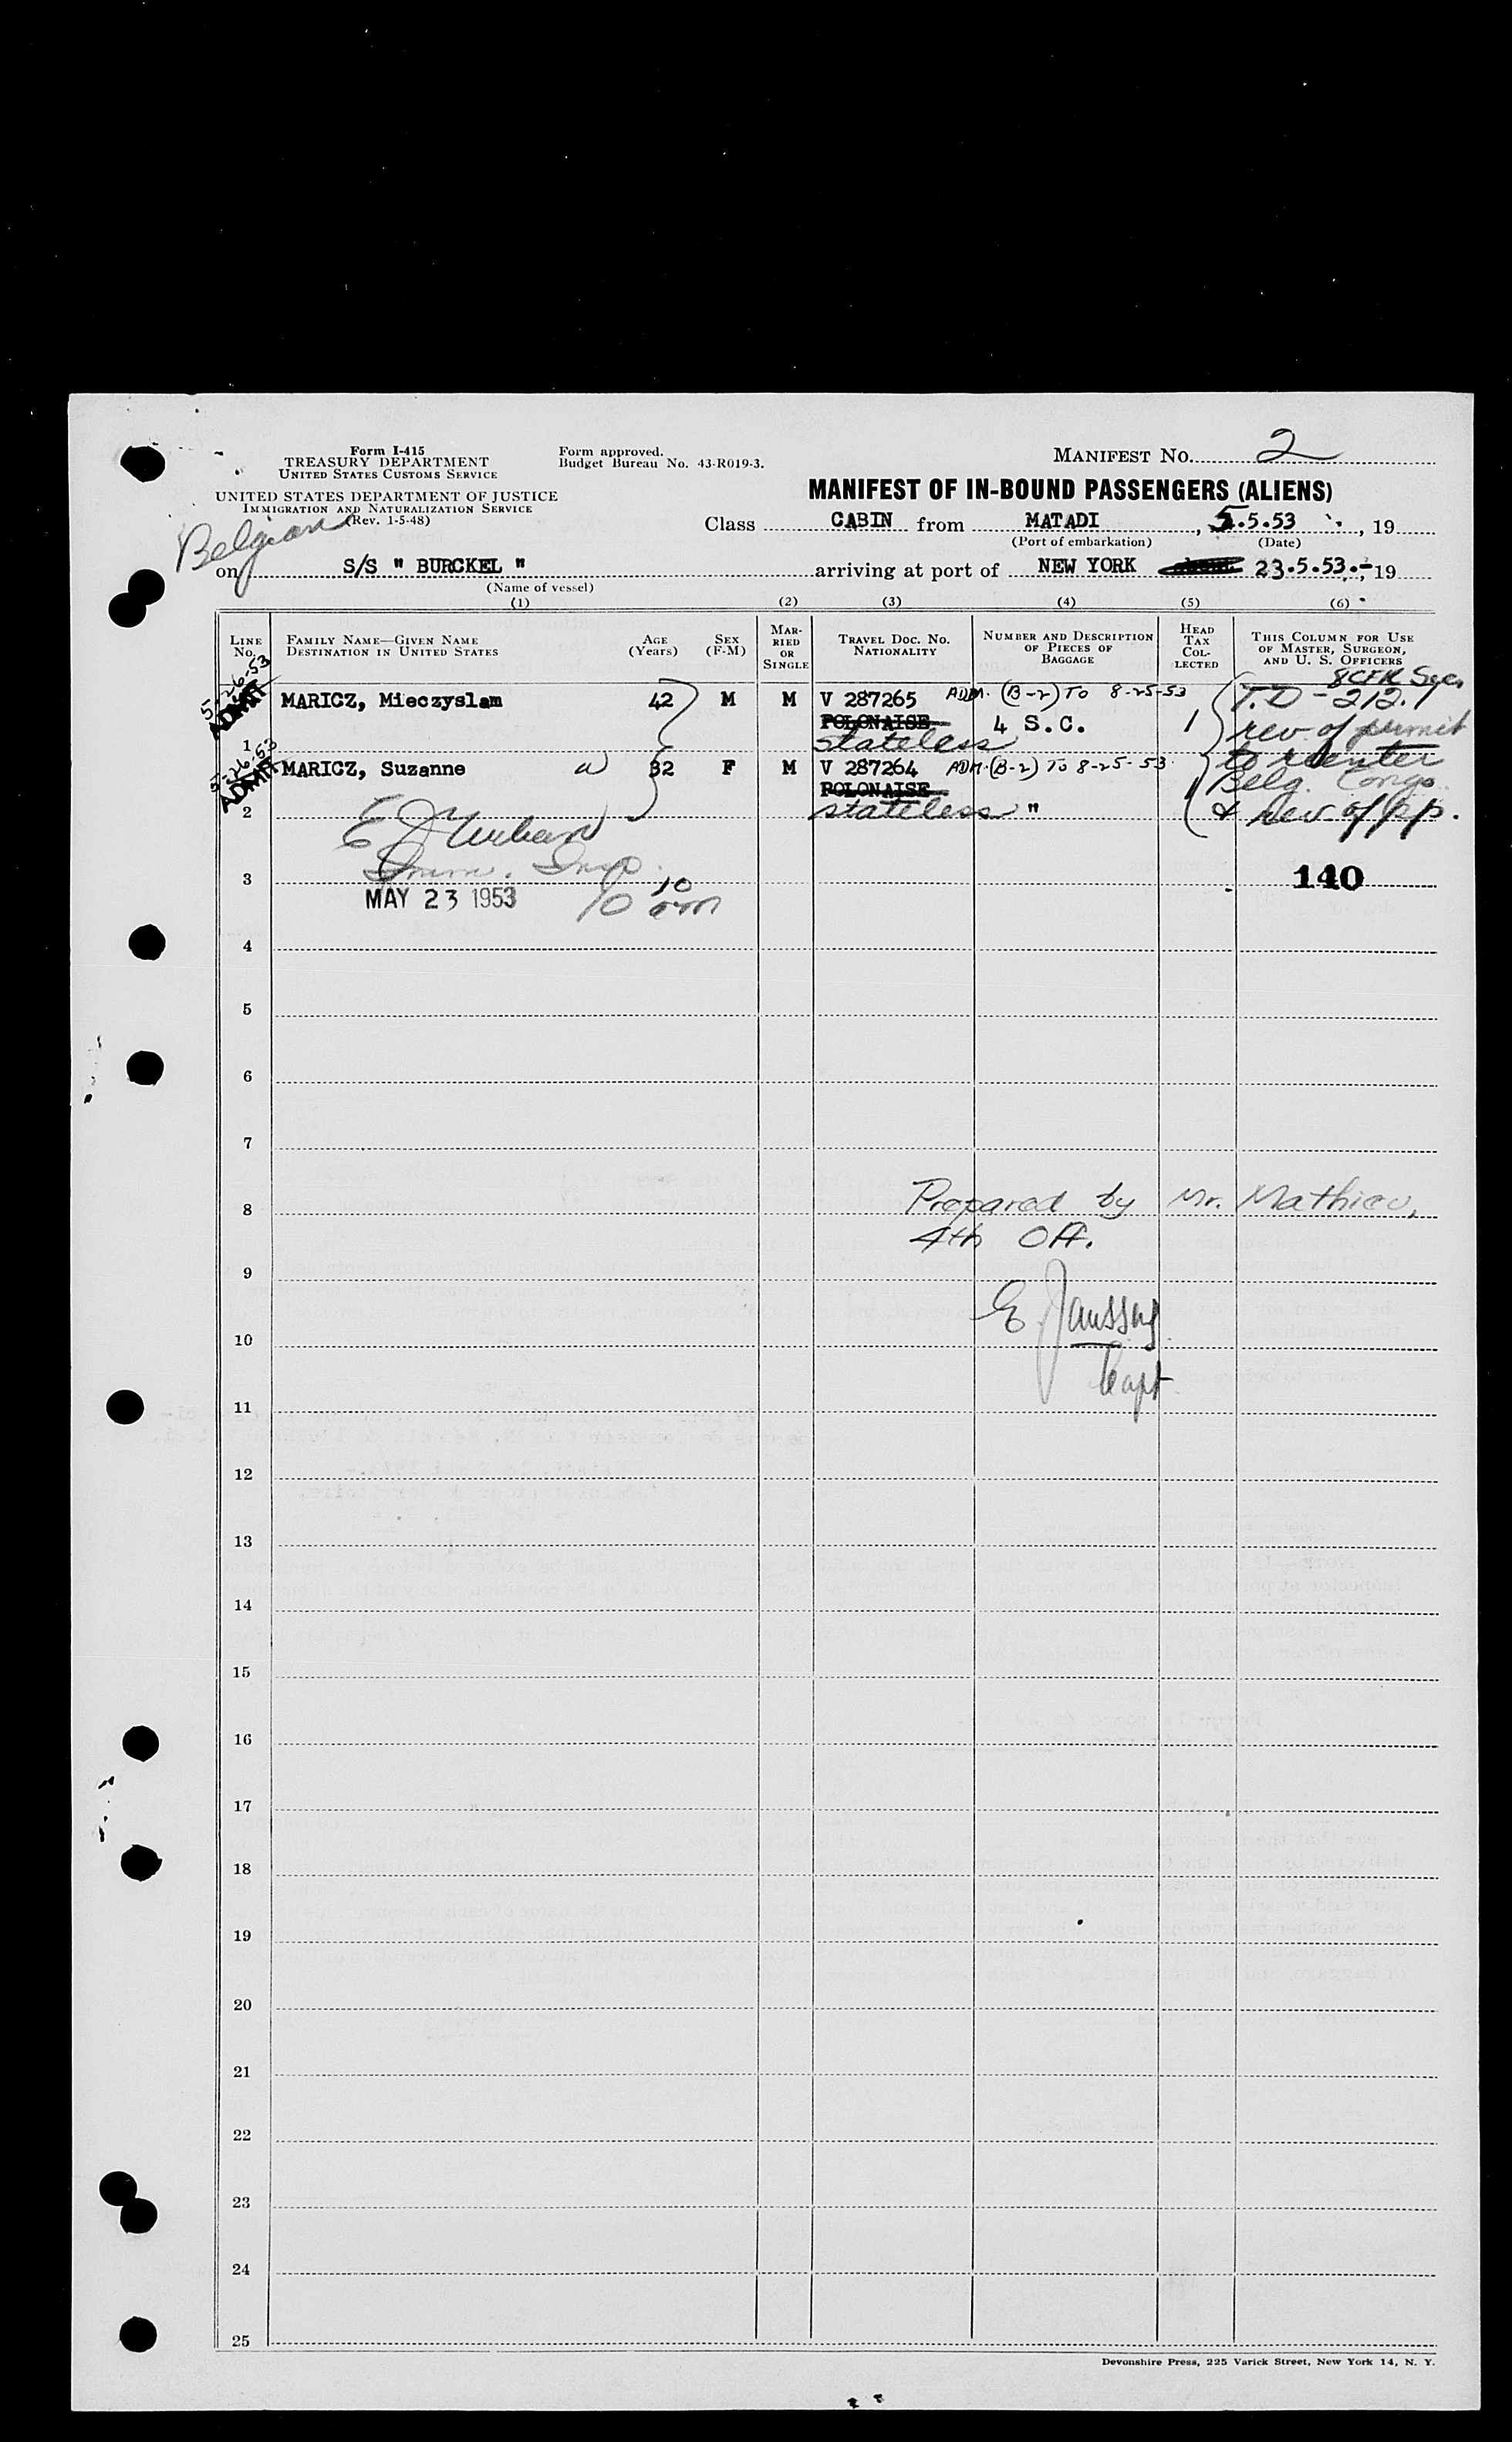 Form I-415
TREASURY DEPARTMENT
UNITED STATES CUSTOMS SERVICE
Form approved.
Budget Bureau No. 43-R019-3.
MANIFEST No. 2
UNITED STATES DEPARTMENT OF JUSTICE
IMMIGRATION AND NATURALIZATION SERVICE
(Rev. 1-5-48)
MANIFEST OF IN-BOUND PASSENGERS (ALIENS)
Belgian
Class CABIN from MATADI, 5.5.53, 19
(Port of embarkation) (Date)
on S/S " BURCKEL " arriving at port of NEW YORK 23.5.53.-, 19
(Name of vessel)
(1) (2) (3) (4) (5) (6)
LINE No. FAMILY NAME—GIVEN NAME DESTINATION IN UNITED STATES AGE (Years) SEX (F-M) MARRIED OR SINGLE TRAVEL DOC. No. NATIONALITY NUMBER AND DESCRIPTION OF PIECES OF BAGGAGE HEAD TAX COLLECTED THIS COLUMN FOR USE OF MASTER, SURGEON, AND U. S. OFFICERS
5-26-53 8CFR Sec.
ADMIT MARICZ, Mieczyslam 42 M M V 287265 ADM. (B-2) TO 8-25-53 T.D - 212.1
POLONAISE 4 S.C. 1 rev of permit
1 stateless
5-26-53 to reenter
ADMIT MARICZ, Suzanne W 32 F M V 287264 ADM. (B-2) TO 8-25-53 Belg. Congo
POLONAISE 1
2 stateless " & rev of pp.
Imm. Insp.
3 140
MAY 23 1953 10 10 am
4
5
6
7
Prepared by Mr. Mathieu,
8
4th Off.
9
E. Janssens
10
Capt
11
12
13
14
15
16
17
18
19
20
21
22
23
24
25
Devonshire Press, 225 Varick Street, New York 14, N. Y.